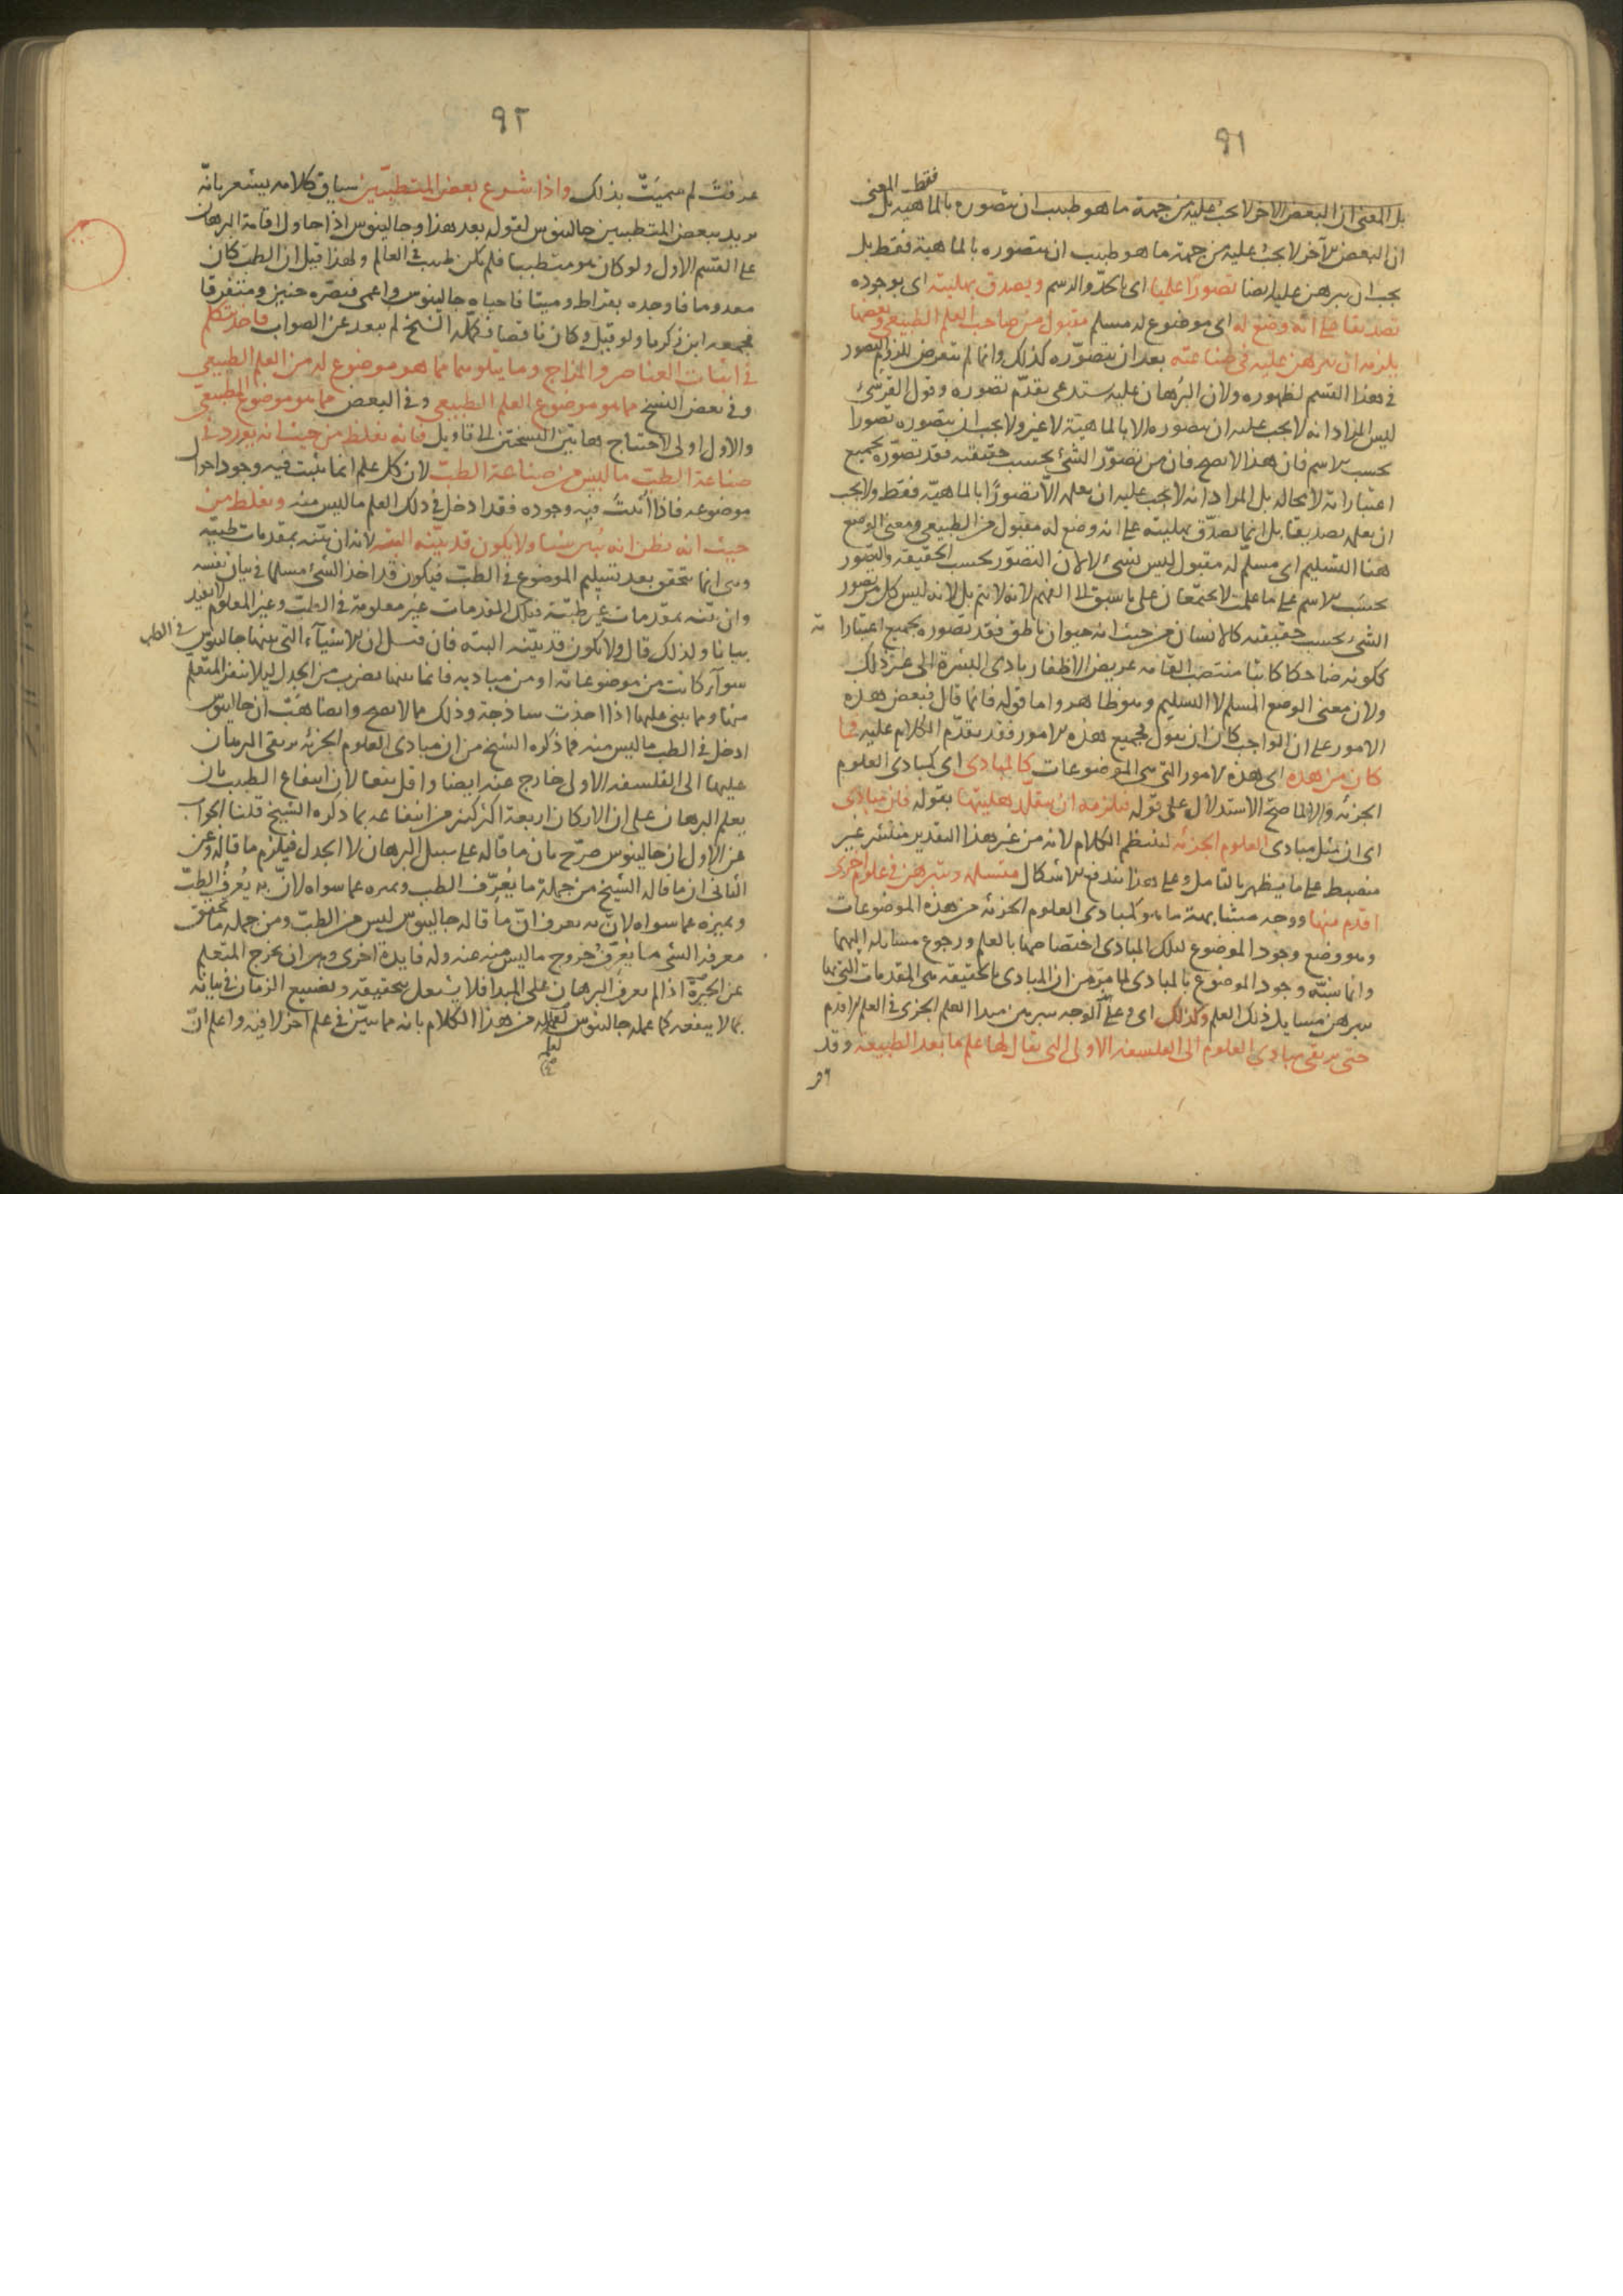 ٩١
فقط المعنى
بل المعنى ان البعض الاخر لا يجب عليه من جهة ما هو طبيب ان يتصوره بالماهية بل
ان البعض الآخر لا يجب عليه من جهة ما هو طبيب ان يتصوره بالماهية فقط بل
يجب ان يبرهن عليه ايضا تصورا علميا اى بالحد والرسم ويصدق بهليته اى بوجوده
تصديقا على انه وضع له اى موضوع له مسلم مقبول من صاحب العلم الطبيعى وبعضها
يلزمه ان يبرهن عليه فى صناعته بعد ان يتصوره كذلك وانما لم يتعرض للزوم التصور
فى هذا القسم لظهوره ولان البرهان عليه يستدعى تقدم تصوره وقول القرشى
ليس المراد انه لا يجب عليه ان يتصوره الا بالماهية لا غير ولا يجب ان يتصوره تصورا
بحسب الاسم فان هذا لا يصح فان من تصور الشئ بحسب حقيقته فقد تصوره بجميع
اعتباراته لا محالة بل المراد انه لا يجب عليه ان يعلمه الا تصورا بالماهية فقط ولا يجب
ان يعلمه تصديقا بل انما يصدق بهليته على انه وضع له مقبول من الطبيعى ومعنى الوضع
هنا التسليم اى مسلم له مقبول ليس بشئ لا لان التصور بحسب الحقيقة والتصور
بحسب الاسم على ما علمت لا يجتمعان على ما سبق الى الفهم لانه لا يتم بل لانه ليس كل من تصور
الشئ بحسب حقيقته كالانسان من حيث انه حيوان ناطق فقد تصوره بجميع اعتبارا ته
ككونه ضاحكا كاتبا منتصب القامه عريض الاظفار بادى البشرة الى غير ذلك
ولان معنى الوضع المسلم لا التسليم وهو ظاهر واما قوله فانما قال فبعض هذه
الامور على ان الواجب كان ان يقول بجميع هذه الامور فقد تقدم الكلام عليه فما
كان من هذه اى هذه الامور التى هى الموضوعات كالمبادى اى كمبادى العلوم
الجزئيه والا لما صح الاستدلال على قوله فيلزمه ان يتقلد هليتها بقوله فان مبادى
اى ان مثل مبادى العلوم الجزئيه لينتظم الكلام لانه من غير هذا التقدير منتشر غير
منضبط على ما يظهر بالتامل وعلى هذا يندفع الاشكال متسلمه وتتبرهن فى علوم اخرى
اقدم منها ووجه مشابهة ما هو كمبادى العلوم الجزئيه من هذه الموضوعات
وهو وضع وجود الموضوع لتلك المبادى اختصاصها بالعلم ورجوع مسايله اليهما
وانما شبه وجود الموضوع بالمبادى لما مر من ان المبادى بالحقيقة هى المقدمات التى بها
يبرهن مسايل ذلك العلم وكذلك اى وعلى الوجه يتبرهن مبدا العلم الجزى فى العلم الاقدم
حتى يرتقى مبادى العلوم الى الفلسفه الاولى التى يقال لها علم ما بعد الطبيعة وقد
٩٢
عرفت لم سميت بذلك واذا شرع بعض المتطببين سياق كلامه يشعر بانه
يريد ببعض المتطببين جالينوس لقوله بعد هذا وجالينوس اذا حاول اقامة البرهان
على القسم الاول ولو كان هو متطببا فلم يكن طبيب فى العالم ولهذا قيل ان الطب كان
معدوما فاوجده بقراط وميتا فاحياه جالينوس واعمى فبصره حنين ومتفرقا
فجمعه ابن زكريا ولو قيل وكان ناقصا فكمله الشيخ لم يبعد عن الصواب فاخذ يتكلم
فى اثبات العناصر والمزاج وما يتلوهما مما هو موضوع له من العلم الطبيعى
وفى بعض النسخ مما هو موضوع العلم الطبيعى وفى البعض مما هو موضوع للطبيعى
والاول اولى لاحتياج هاتين النسختين الى تاويل فانه يغلط من حيث انه يورد فى
صناعة الطب ما ليس من صناعة الطب لان كل علم انما يثبت فيه وجود احوال
موضوعه فاذا اثبت فيه وجوده فقد ادخل فى ذلك العلم ما ليس منه ويغلط من
حيث انه يظن انه يبين شيئا ولا يكون قد بينه البته لانه ان بينه بمقدمات طبيه
وهى انما تتحقق بعد تسليم الموضوع فى الطب فيكون قد اخذ الشئ مسلما فى بيان نفسه
وان بينه بمقدمات غير طبية فتلك المقدمات غير معلومة فى الطب وغير المعلوم لا يفيد
بيانا ولذلك قال ولا يكون قد بينه البته فان قيل ان الاشياء التى بينها جالينوس فى الطب
سوآء كانت من موضوعاته او من مباديه فانما بينها بضرب من الجدل ليلا ينفر المتعلم
منها ومما يبنى عليها اذا اخذت ساذجة وذلك مما لا يصح وايضا هب ان جالينوس
ادخل فى الطب ما ليس منه فما ذكره الشيخ من ان مبادى العلوم الجزئيه يرتقى البرهان
عليها الى الفلسفه الاولى خارج عنه ايضا واقل نفعا لان انتفاع الطبيب بان
يعلم البرهان على ان الاركان اربعة اكثر كثير من انتفاعه بما ذكره الشيخ قلنا الجواب
عن الاول ان جالينوس صرح بان ما قاله على سبيل البرهان لا الجدل فيلزم ما قاله وعن
الثانى ان ما قاله الشيخ من جملة ما يعرف الطب ويميزه عما سواه لان به يعرف الطب
ويميزه عما سواه لان به يعرف ان ما قاله جالينوس ليس من الطب ومن جمله ما يحقق
معرفة الشئ ما يعرف خروج ما ليس منه عنه وله فايدة اخرى وهى ان يخرج المتعلم
عن الحيرة اذا لم يعرف البرهان على المبدا فلا يشتغل بتحقيقه وتضييع الزمان فى بيانه
بما لا ينفعه كما عمله جالينوس من هذا الكلام بانه مما يتبين فى علم آخر لا فيه واعلم ان